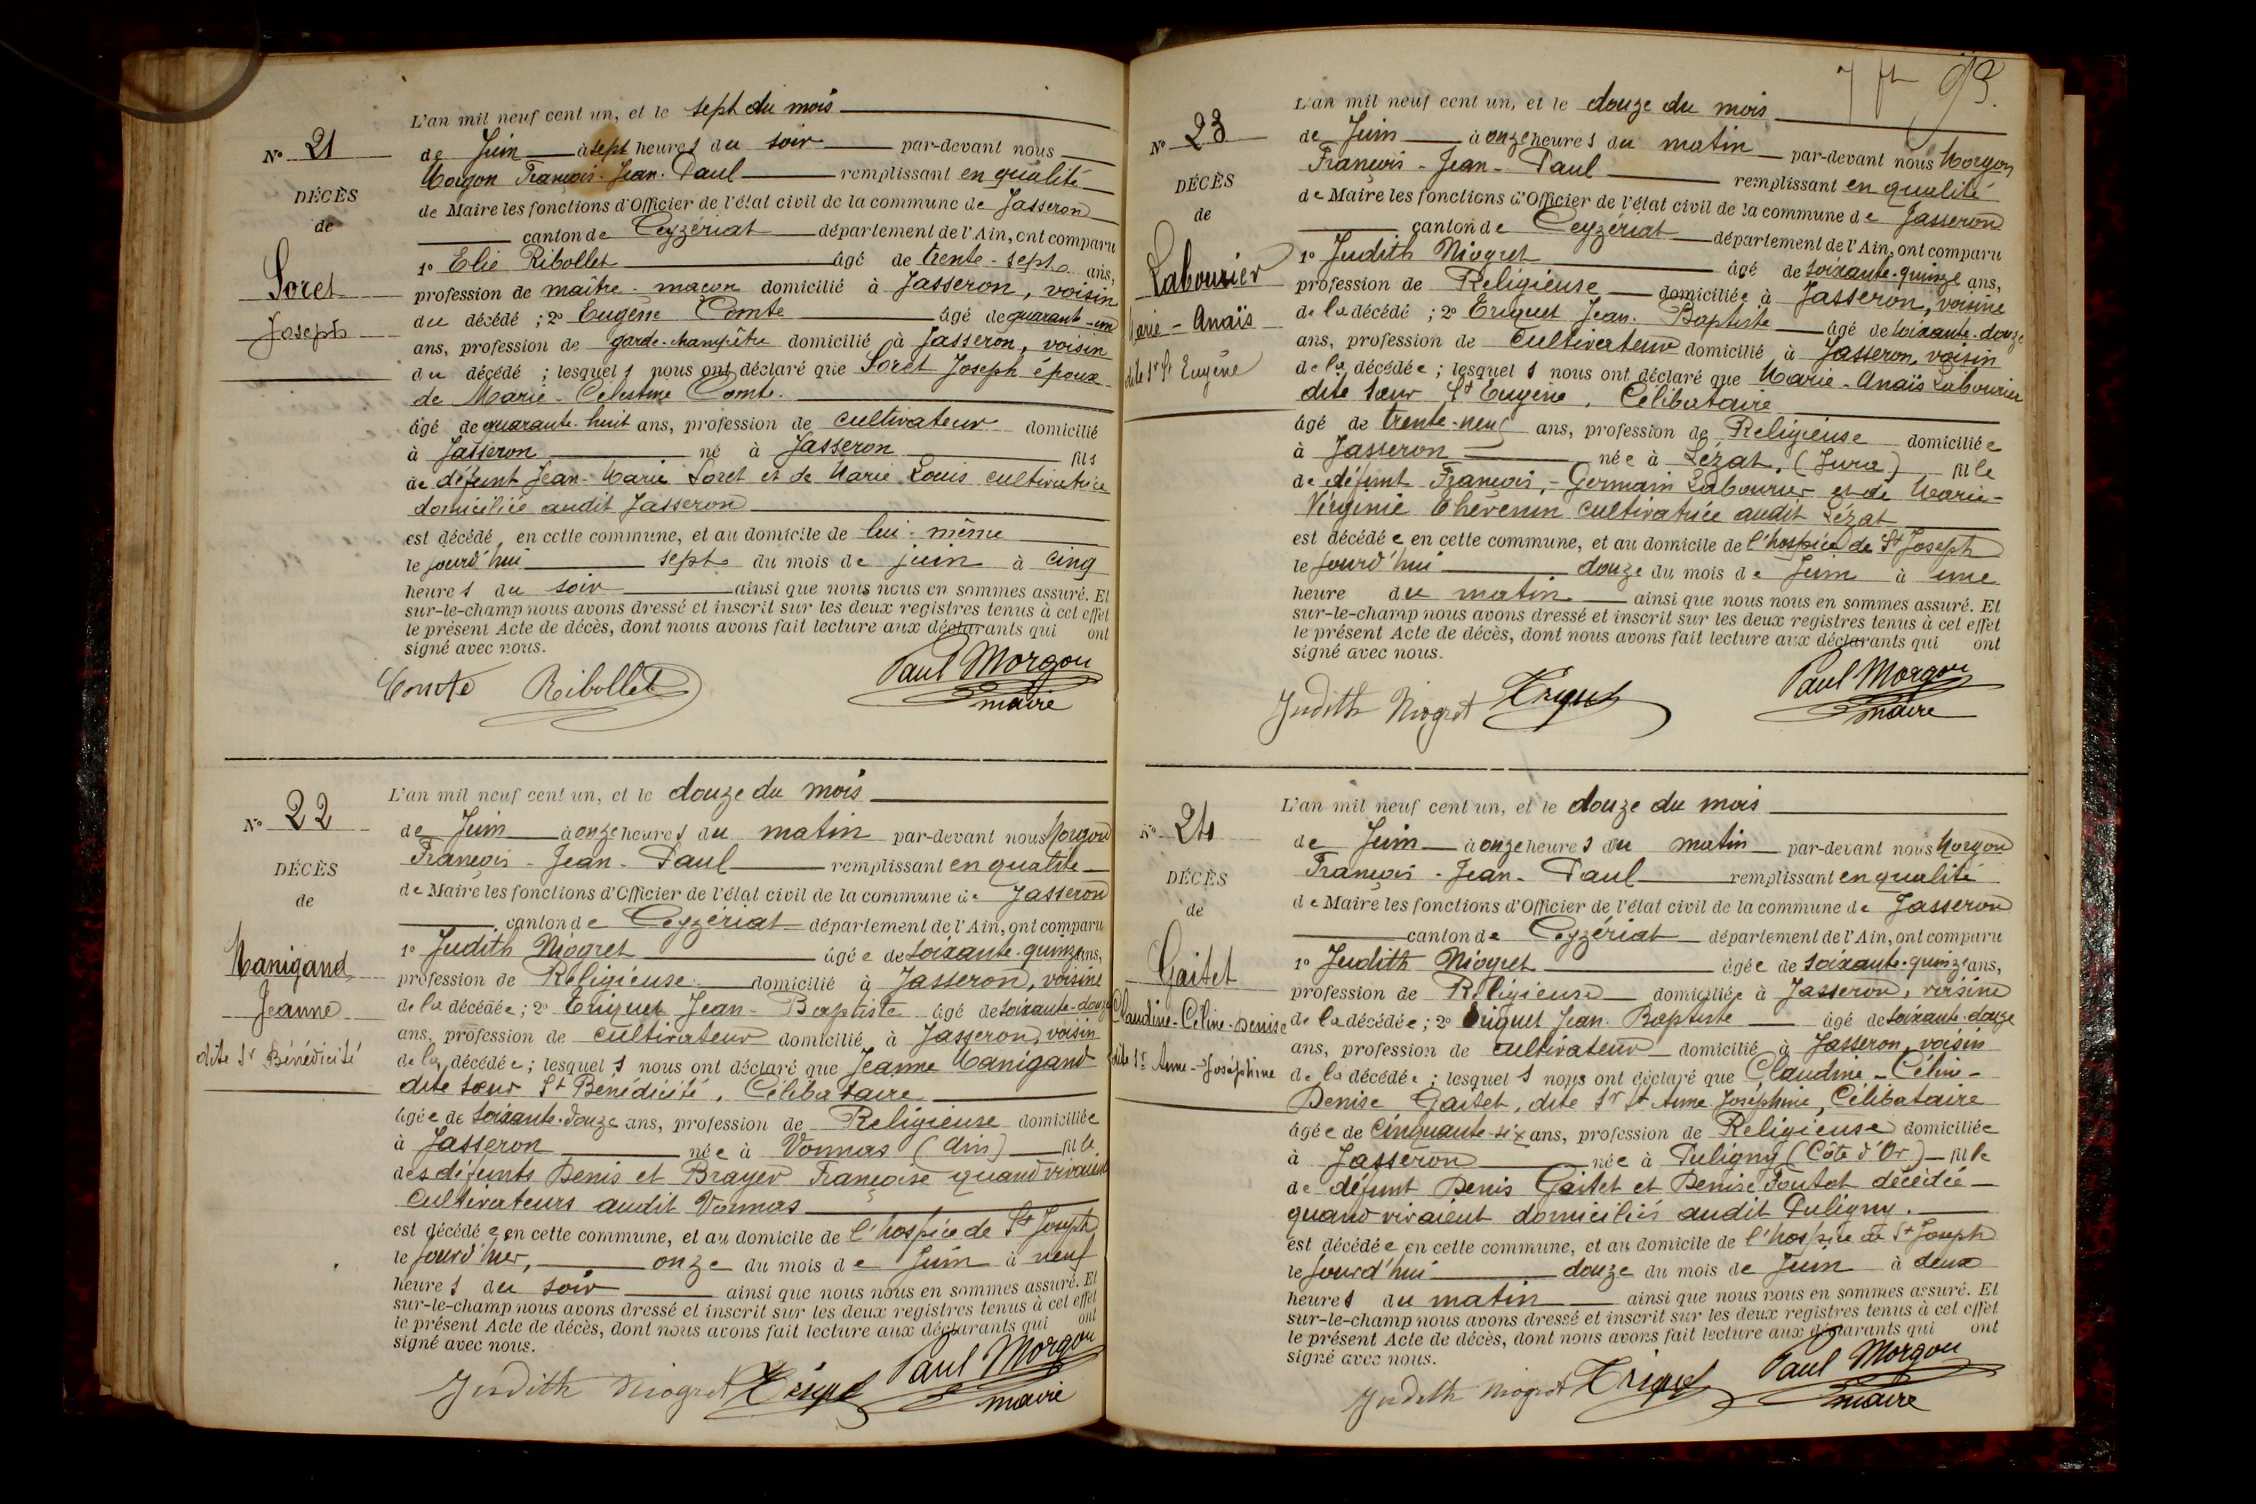 L'an mil neuf cent un, et le sept du mois
N° 21
de Juin à sept heures du soir par-devant nous
Morgon François-Jean-Paul remplissant en qualité
DÉCÈS
de Maire les fonctions d'Officier de l'état civil de la commune de Jasseron
de
canton de Ceyzériat département de l'Ain, ont comparu
Soret
1° Elie Ribollet âgé de trente-sept ans,
profession de maître-maçon domicilié à Jasseron, voisin
Joseph
du décédé ; 2° Eugène Comte âgé de quarante-un
ans, profession de garde-champêtre domicilié à Jasseron, voisin
du décédé ; lesquels nous ont déclaré que Soret Joseph époux
de Marie-Célestine Comte.
âgé de quarante-huit ans, profession de cultivateur domicilié
à Jasseron né à Jasseron fils
de défunt Jean-Marie Soret et de Marie Louis cultivatrice
domiciliée audit Jasseron
est décédé en cette commune, et au domicile de lui-même
le jourd'hui sept du mois de juin à cinq
heures du soir ainsi que nous nous en sommes assuré. Et
sur-le-champ nous avons dressé et inscrit sur les deux registres tenus à cet effet
le présent Acte de décès, dont nous avons fait lecture aux déclarants qui ont
signé avec nous.
Comte Ribollet Paul Morgon
maire
L'an mil neuf cent un, et le douze du mois
N° 22
de Juin à onze heures du matin par-devant nous Morgon
François-Jean-Paul remplissant en qualité
DÉCÈS
de Maire les fonctions d'Officier de l'état civil de la commune de Jasseron
de
canton de Ceyzériat département de l'Ain, ont comparu
Manigand
1° Judith Niogret âgée de soixante-quinze ans,
profession de Religieuse domicilié à Jasseron, voisine
Jeanne
de la décédée ; 2° Triquet Jean-Baptiste âgé de soixante-douze
ans, profession de cultivateur domicilié à Jasseron, voisin
dite Sr Bénédicité
de la décédée ; lesquels nous ont déclaré que Jeanne Manigand
dite sœur St Bénédicité, Célibataire
âgée de soixante-douze ans, profession de Religieuse domiciliée
à Jasseron née à Vonnas (Ain) fille
des défunts Denis et Brayer Françoise quand vivaient
cultivateurs audit Vonnas
est décédée en cette commune, et au domicile de l'hospice de St Joseph
le jourd'hier, onze du mois de Juin à neuf
heures du soir ainsi que nous nous en sommes assuré. Et
sur-le-champ nous avons dressé et inscrit sur les deux registres tenus à cet effet
le présent Acte de décès, dont nous avons fait lecture aux déclarants qui ont
signé avec nous.
Judith Niogret Triquet Paul Morgon
maire
93.
L'an mil neuf cent un, et le douze du mois
N° 23
de Juin à onze heures du matin par-devant nous Morgon
François-Jean-Paul remplissant en qualité
DÉCÈS
de Maire les fonctions d'Officier de l'état civil de la commune de Jasseron
de
canton de Ceyzériat département de l'Ain, ont comparu
Labourier
1° Judith Niogret âgé de soixante-quinze ans,
profession de Religieuse domiciliée à Jasseron, voisine
Marie-Anaïs
de la décédée ; 2° Triquet Jean-Baptiste âgé de soixante-douze
ans, profession de cultivateur domicilié à Jasseron, voisin
dite Sr St Eugène
de la décédée ; lesquels nous ont déclaré que Marie-Anaïs Labourier
dite sœur St Eugène, Célibataire
âgé de trente-neuf ans, profession de Religieuse domiciliée
à Jasseron née à Lézat, (Jura) fille
de défunt François-Germain Labourier et de Marie-
Virginie Thévenin cultivatrice audit Lézat
est décédée en cette commune, et au domicile de l'hospice de St Joseph
le jourd'hui douze du mois de Juin à une
heure du matin ainsi que nous nous en sommes assuré. Et
sur-le-champ nous avons dressé et inscrit sur les deux registres tenus à cet effet
le présent Acte de décès, dont nous avons fait lecture aux déclarants qui ont
signé avec nous.
Judith Niogret Triquet Paul Morgon
maire
L'an mil neuf cent un, et le douze du mois
N° 24
de Juin à onze heures du matin par-devant nous Morgon
François-Jean-Paul remplissant en qualité
DÉCÈS
de Maire les fonctions d'Officier de l'état civil de la commune de Jasseron
de
canton de Ceyzériat département de l'Ain, ont comparu
Gaitet
1° Judith Niogret âgée de soixante-quinze ans,
profession de Religieuse domiciliée à Jasseron, voisine
Claudine-Céline-Denise
de la décédée ; 2° Triquet Jean-Baptiste âgé de soixante-douze
ans, profession de cultivateur domicilié à Jasseron, voisin
dite Sr Anne-Joséphine
de la décédée ; lesquels nous ont déclaré que Claudine-Céline-
Denise Gaitet, dite Sr St Anne Joséphine, Célibataire
âgée de cinquante-six ans, profession de Religieuse domiciliée
à Jasseron née à Puligny (Côte d'Or) fille
de défunt Denis Gaitet et Denise Foutot décédée
quand vivaient domiciliés audit Puligny.
est décédée en cette commune, et au domicile de l'hospice de St Joseph
le jourd'hui douze du mois de Juin à deux
heures du matin ainsi que nous nous en sommes assuré. Et
sur-le-champ nous avons dressé et inscrit sur les deux registres tenus à cet effet
le présent Acte de décès, dont nous avons fait lecture aux déclarants qui ont
signé avec nous.
Judith Niogret Triquet Paul Morgon
maire